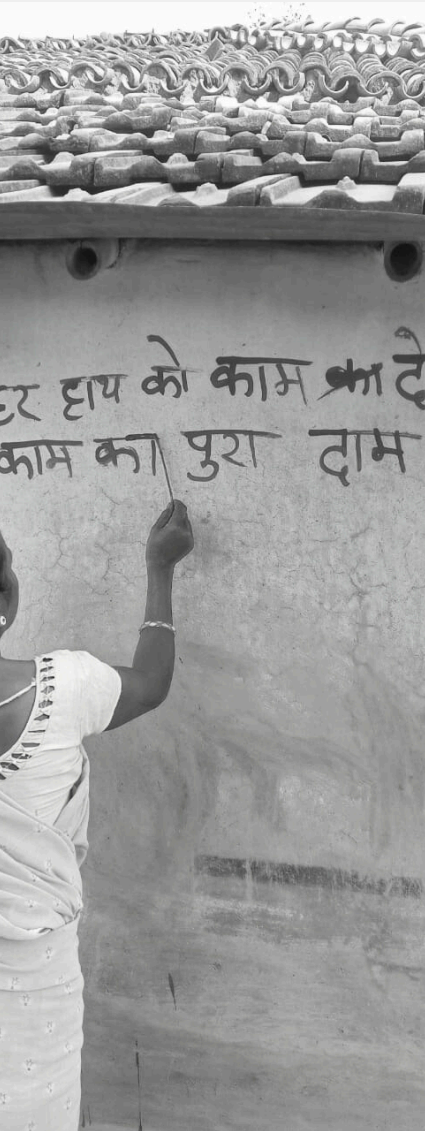 हर हाथ को काम का दे
काम का पुरा दाम